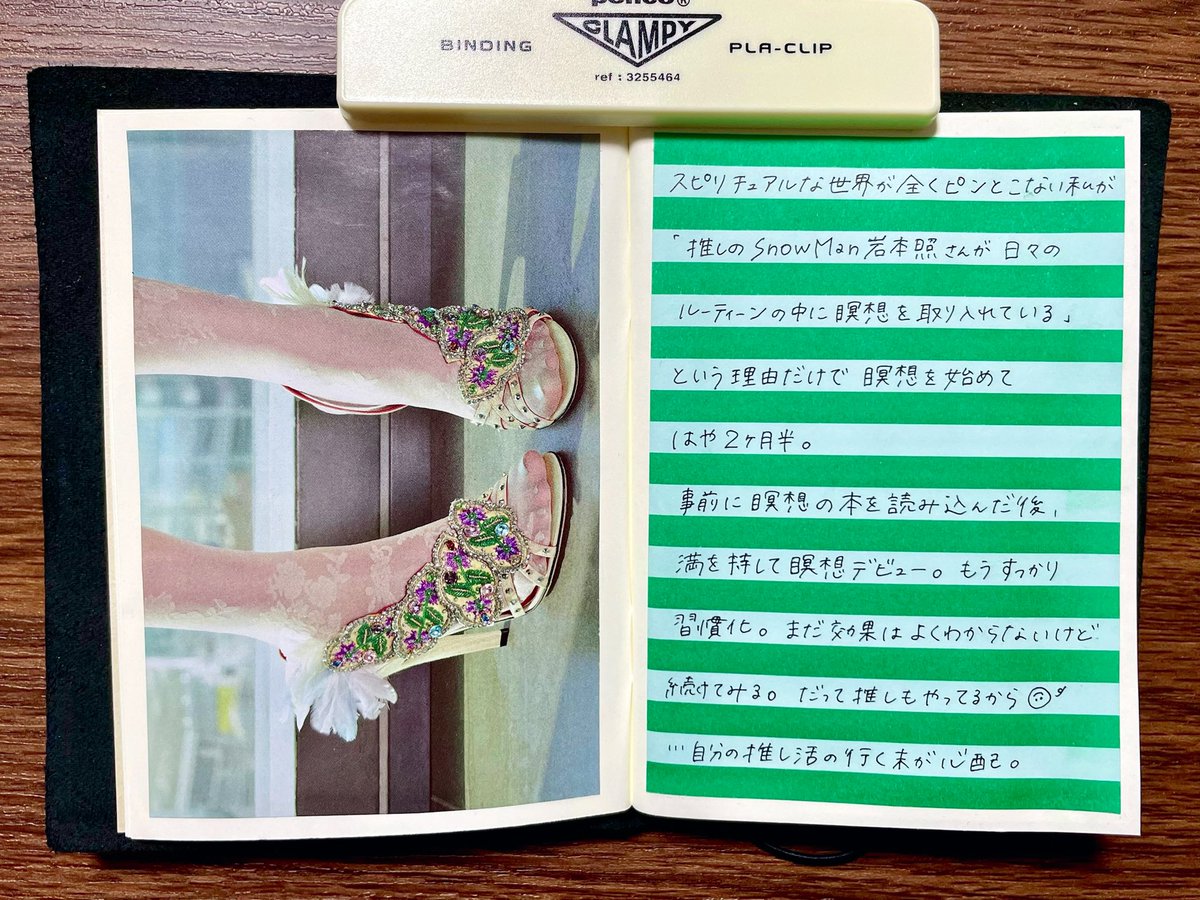 penco®
GLAMPY
BINDING
PLA-CLIP
ref : 3255464
スピリチュアルな世界が全くピンとこない私が
「推しのSnowMan岩本照さんが日々の
ルーティーンの中に瞑想を取り入れている」
という理由だけで瞑想を始めて
はや2ヶ月半。
事前に瞑想の本を読み込んだ後、
満を持して瞑想デビュー。もうすっかり
習慣化。まだ効果はよくわからないけど
続けてみる。だって推しもやってるから
…自分の推し活の行く末が心配。